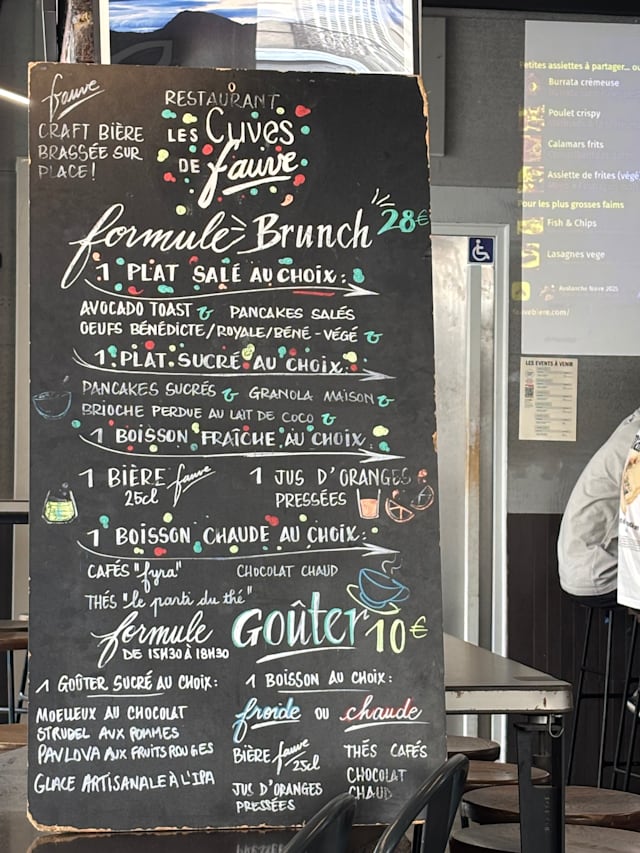 fauve
CRAFT BIÈRE
BRASSÉE SUR
PLACE!
RESTAURANT
LES Cuves
DE fauve
formule Brunch 28€
1 PLAT SALÉ AU CHOIX:
AVOCADO TOAST PANCAKES SALÉS
OEUFS BÉNÉDICTE/ROYALE/BÉNÉ-VÉGÉ
1 PLAT SUCRÉ AU CHOIX:
PANCAKES SUCRÉS GRANOLA MAISON
BRIOCHE PERDUE AU LAIT DE COCO
1 BOISSON FRAÎCHE AU CHOIX:
1 BIÈRE fauve
25cl
1 JUS D'ORANGES
PRESSÉES
1 BOISSON CHAUDE AU CHOIX:
CAFÉS "fyra" CHOCOLAT CHAUD
THÉS "le parti du thé"
formule GOÛTER 10€
DE 15H30 À 18H30
1 GOÛTER SUCRÉ AU CHOIX:
MOELLEUX AU CHOCOLAT
STRUDEL AUX POMMES
PAVLOVA AUX FRUITS ROUGES
GLACE ARTISANALE À L'IPA
1 BOISSON AU CHOIX:
froide OU chaude
BIÈRE fauve
25cl
JUS D'ORANGES
PRESSÉES
THÉS CAFÉS
CHOCOLAT
CHAUD
Petites assiettes à partager... ou
Burrata crémeuse
Poulet crispy
Calamars frits
Assiette de frites (végé
Pour les plus grosses faims
Fish & Chips
Lasagnes vege
Avalanche Noire 2025
fauvebiere.com/
LES EVENTS À VENIR